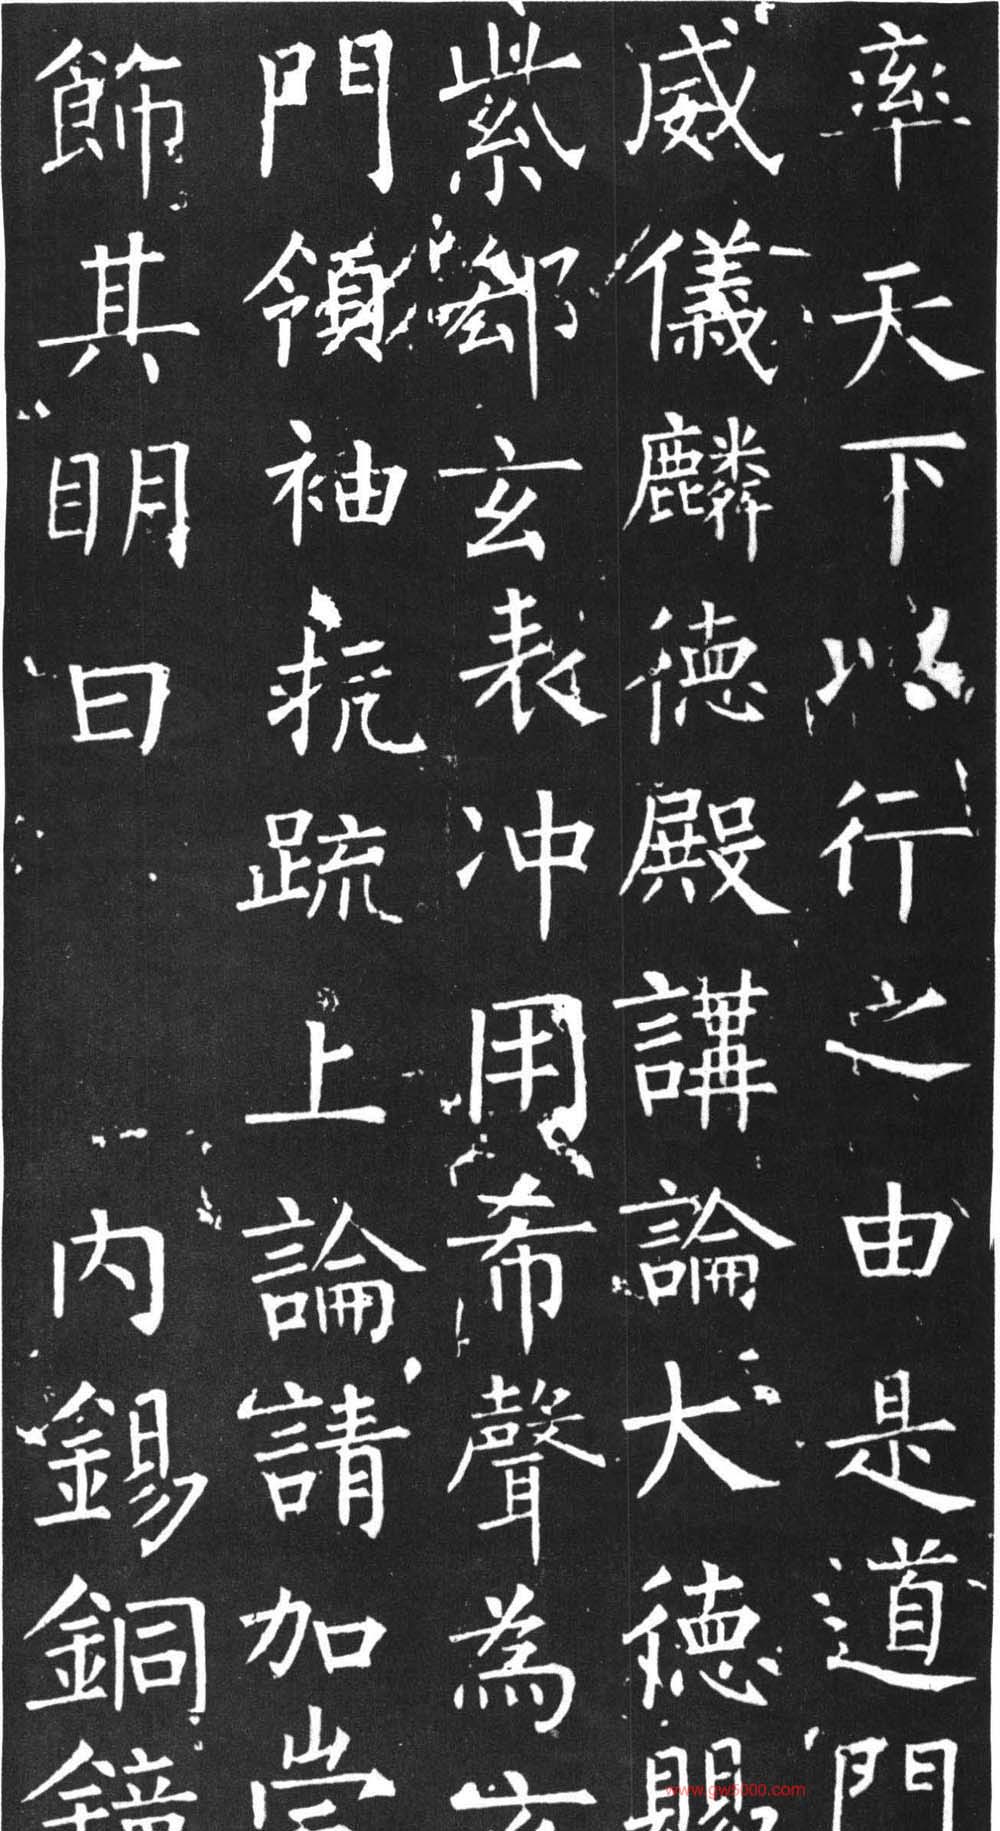 率天下以行之由是道門
威儀麟德殿講論大德賜
紫鄧玄表冲用希聲為玄
門領袖抗疏上論請加崇
飾其明日 內錫銅鐘
www.gw5000.com